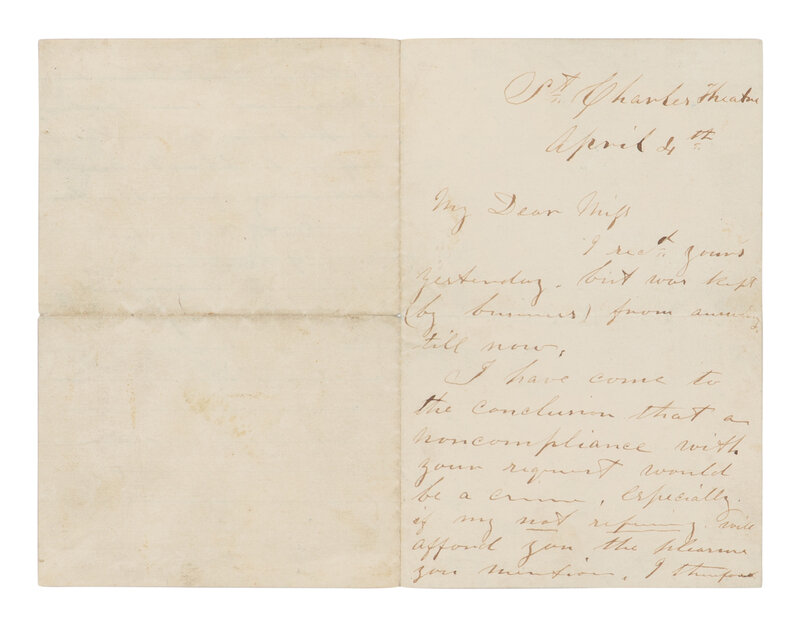 St. Charles Theatre
April 4th
My Dear Miss
I recd. yours
yesterday. but was kept
(by business) from answering
till now.
I have come to
the conclusion that a
noncompliance with
your request would
be a crime, especially.
if my not refusing. will
afford you the pleasure
you mention. I therefore